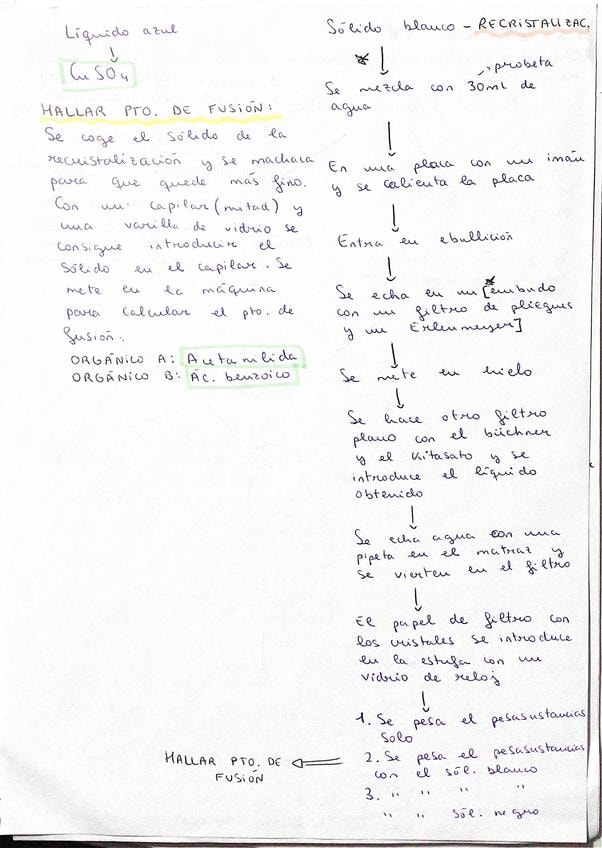 Líquido azul
CuSO4
HALLAR PTO. DE FUSIÓN:
Se coge el sólido de la
recristalización y se machaca
para que quede más fino.
Con un capilar (mitad) y
una varilla de vidrio se
consigue introducir el
sólido en el capilar. Se
mete en la máquina
para calcular el pto. de
fusión.
ORGÁNICO A: Acetanilida
ORGÁNICO B: Ác. benzoico
Sólido blanco - RECRISTALIZAC.
probeta
Se mezcla con 30ml de
agua
En una placa con un imán
y se calienta la placa
Entra en ebullición
Se echa en un [embudo
con un filtro de pliegues
y un Erlenmeyer]
Se mete en hielo
Se hace otro filtro
plano con el büchner
y el kitasato y se
introduce el líquido
obtenido
Se echa agua con una
pipeta en el matraz y
se vierten en el filtro
El papel de filtro con
los cristales se introduce
en la estufa con un
vidrio de reloj
1. Se pesa el pesasustancias
solo
2. Se pesa el pesasustancias
con el sól. blanco
3. " " " "
" " sól. negro
HALLAR PTO. DE
FUSIÓN